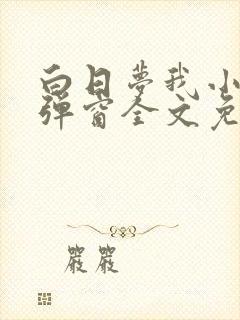 白日梦我小
弹窗全文免
严严